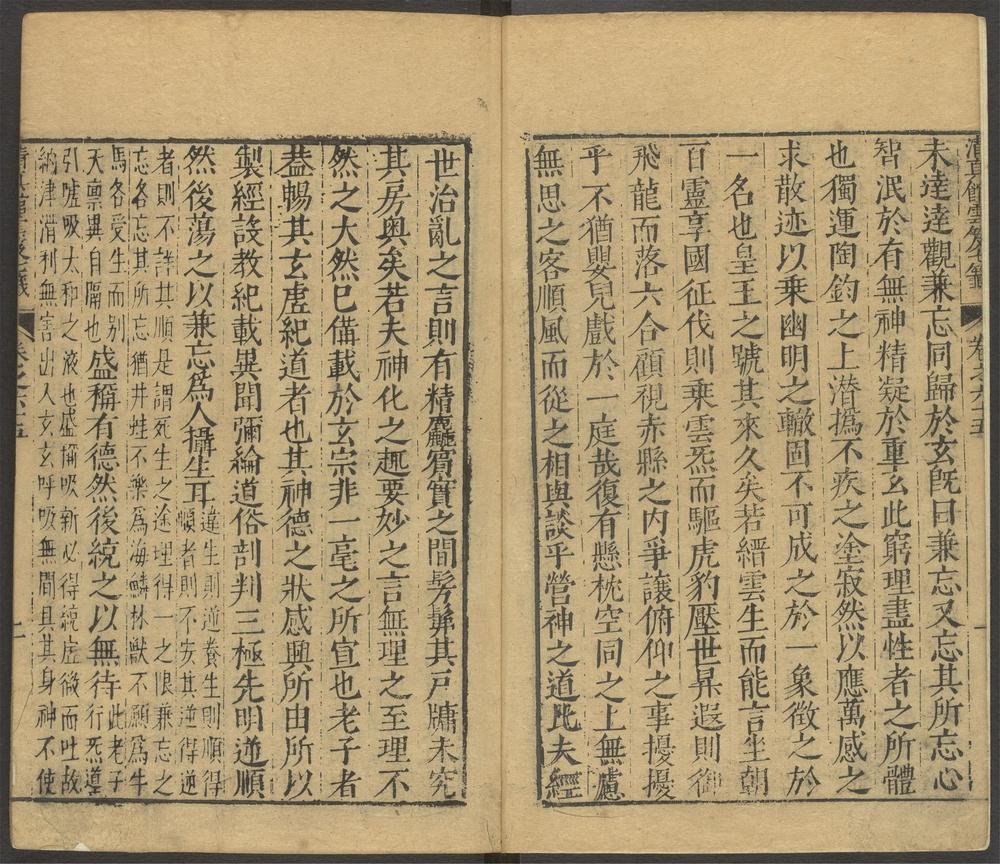 清真館雲笈七籤 卷之六十五 一
未達達觀兼忘同歸於玄既曰兼忘又忘其所忘心
智泯於有無神精凝於重玄此窮理盡性者之所體
也獨運陶鈞之上潛撝不疾之塗寂然以應萬感之
求散迹以乗幽明之轍固不可成之於一象徵之於
一名也皇王之號其來久矣若縉雲生而能言坐朝
百靈享國征伐則乗雲炁而驅虎豹壓世昇遐則御
飛龍而落六合顧視赤縣之内爭讓俯仰之事擾擾
乎不猶嬰兒戲於一庭哉復有懸枕空同之上無慮
無思之客順風而從之相與談乎營神之道比夫經
世治亂之言則有精麤賔實之間髣髴其戸牖未究
其房奥矣若夫神化之趣要妙之言無理之至理不
然之大然巳備載於玄宗非一毫之所宣也老子者
蓋暢其玄虗紀道者也其神德之狀感興所由所以
製經設教紀載異聞彌綸道俗剖判三極先明逆順
然後蕩之以兼忘爲人攝生耳違生則逆養生則順得
順者則不安其逆得逆
者則不許其順是謂死生之途理得一之恨兼忘之
忘各忘其所忘猶井蛙不樂爲海鱗林獸不願爲牛
馬各受生而别
天禀異自隔也盛稱有德然後統之以無待此老子
行炁導
引嘘吸太和之液也盛稱吸新必得統虗微而吐故
納津消利無害出入玄玄呼吸無間具其身神不使